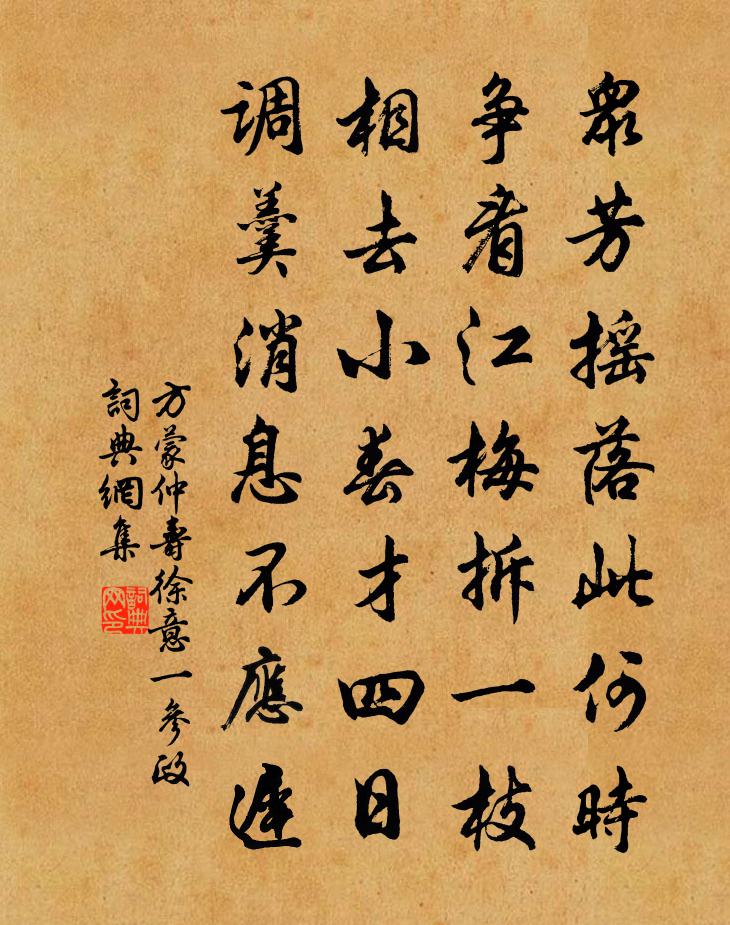 眾芳摇落此何時
争看江梅拆一枝
相去小春才四日
调羹消息不應遲
方蒙仲壽徐意一參政
詞典網集
詞典
网印